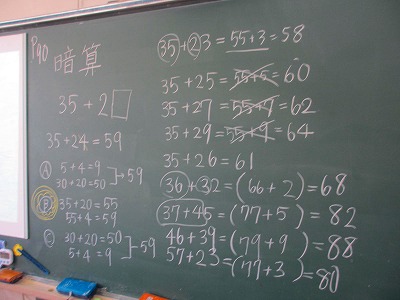 P90
暗算
35+2□
35+24=59
Ⓐ 5+4=9
30+20=50 →59
Ⓑ 35+20=55
55+4=59
Ⓒ 30+20=50
5+4=9 →59
35+23=55+3=58
35+25=55+5=60
35+27=55+7=62
35+29=55+9=64
35+26=61
36+32=(66+2)=68
37+45=(77+5)=82
46+39=(79+9)=88
57+23=(77+3)=80